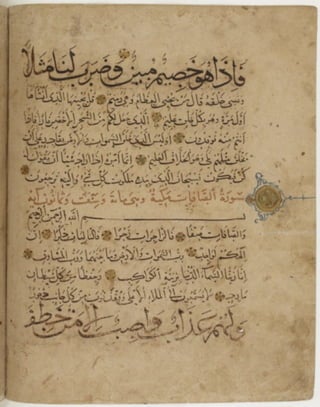 فاذا هو خصيم مبين وضرب لنا مثلا
ونسي خلقه قال من يحيي العظام وهي رميم قل يحييها الذي انشاها
اول مرة وهو بكل خلق عليم الذي جعل لكم من الشجر الاخضر نارا فاذا
انتم منه توقدون اوليس الذي خلق السموات والارض بقادر على ان
يخلق مثلهم بلى وهو الخلاق العليم انما امره اذا اراد شيئا ان يقول له
كن فيكون فسبحان الذي بيده ملكوت كل شيء واليه ترجعون
سورة الصافات مكية وهي ماية وثمانون آية
بسم الله الرحمن الرحيم
والصافات صفا فالزاجرات زجرا فالتاليات ذكرا ان
الهكم لواحد رب السموات والارض وما بينهما ورب المشارق
انا زينا السماء الدنيا بزينة الكواكب وحفظا من كل شيطان
مارد لا يسمعون الى الملا الاعلى ويقذفون من كل جانب دحورا
ولهم عذاب واصب الا من خطف